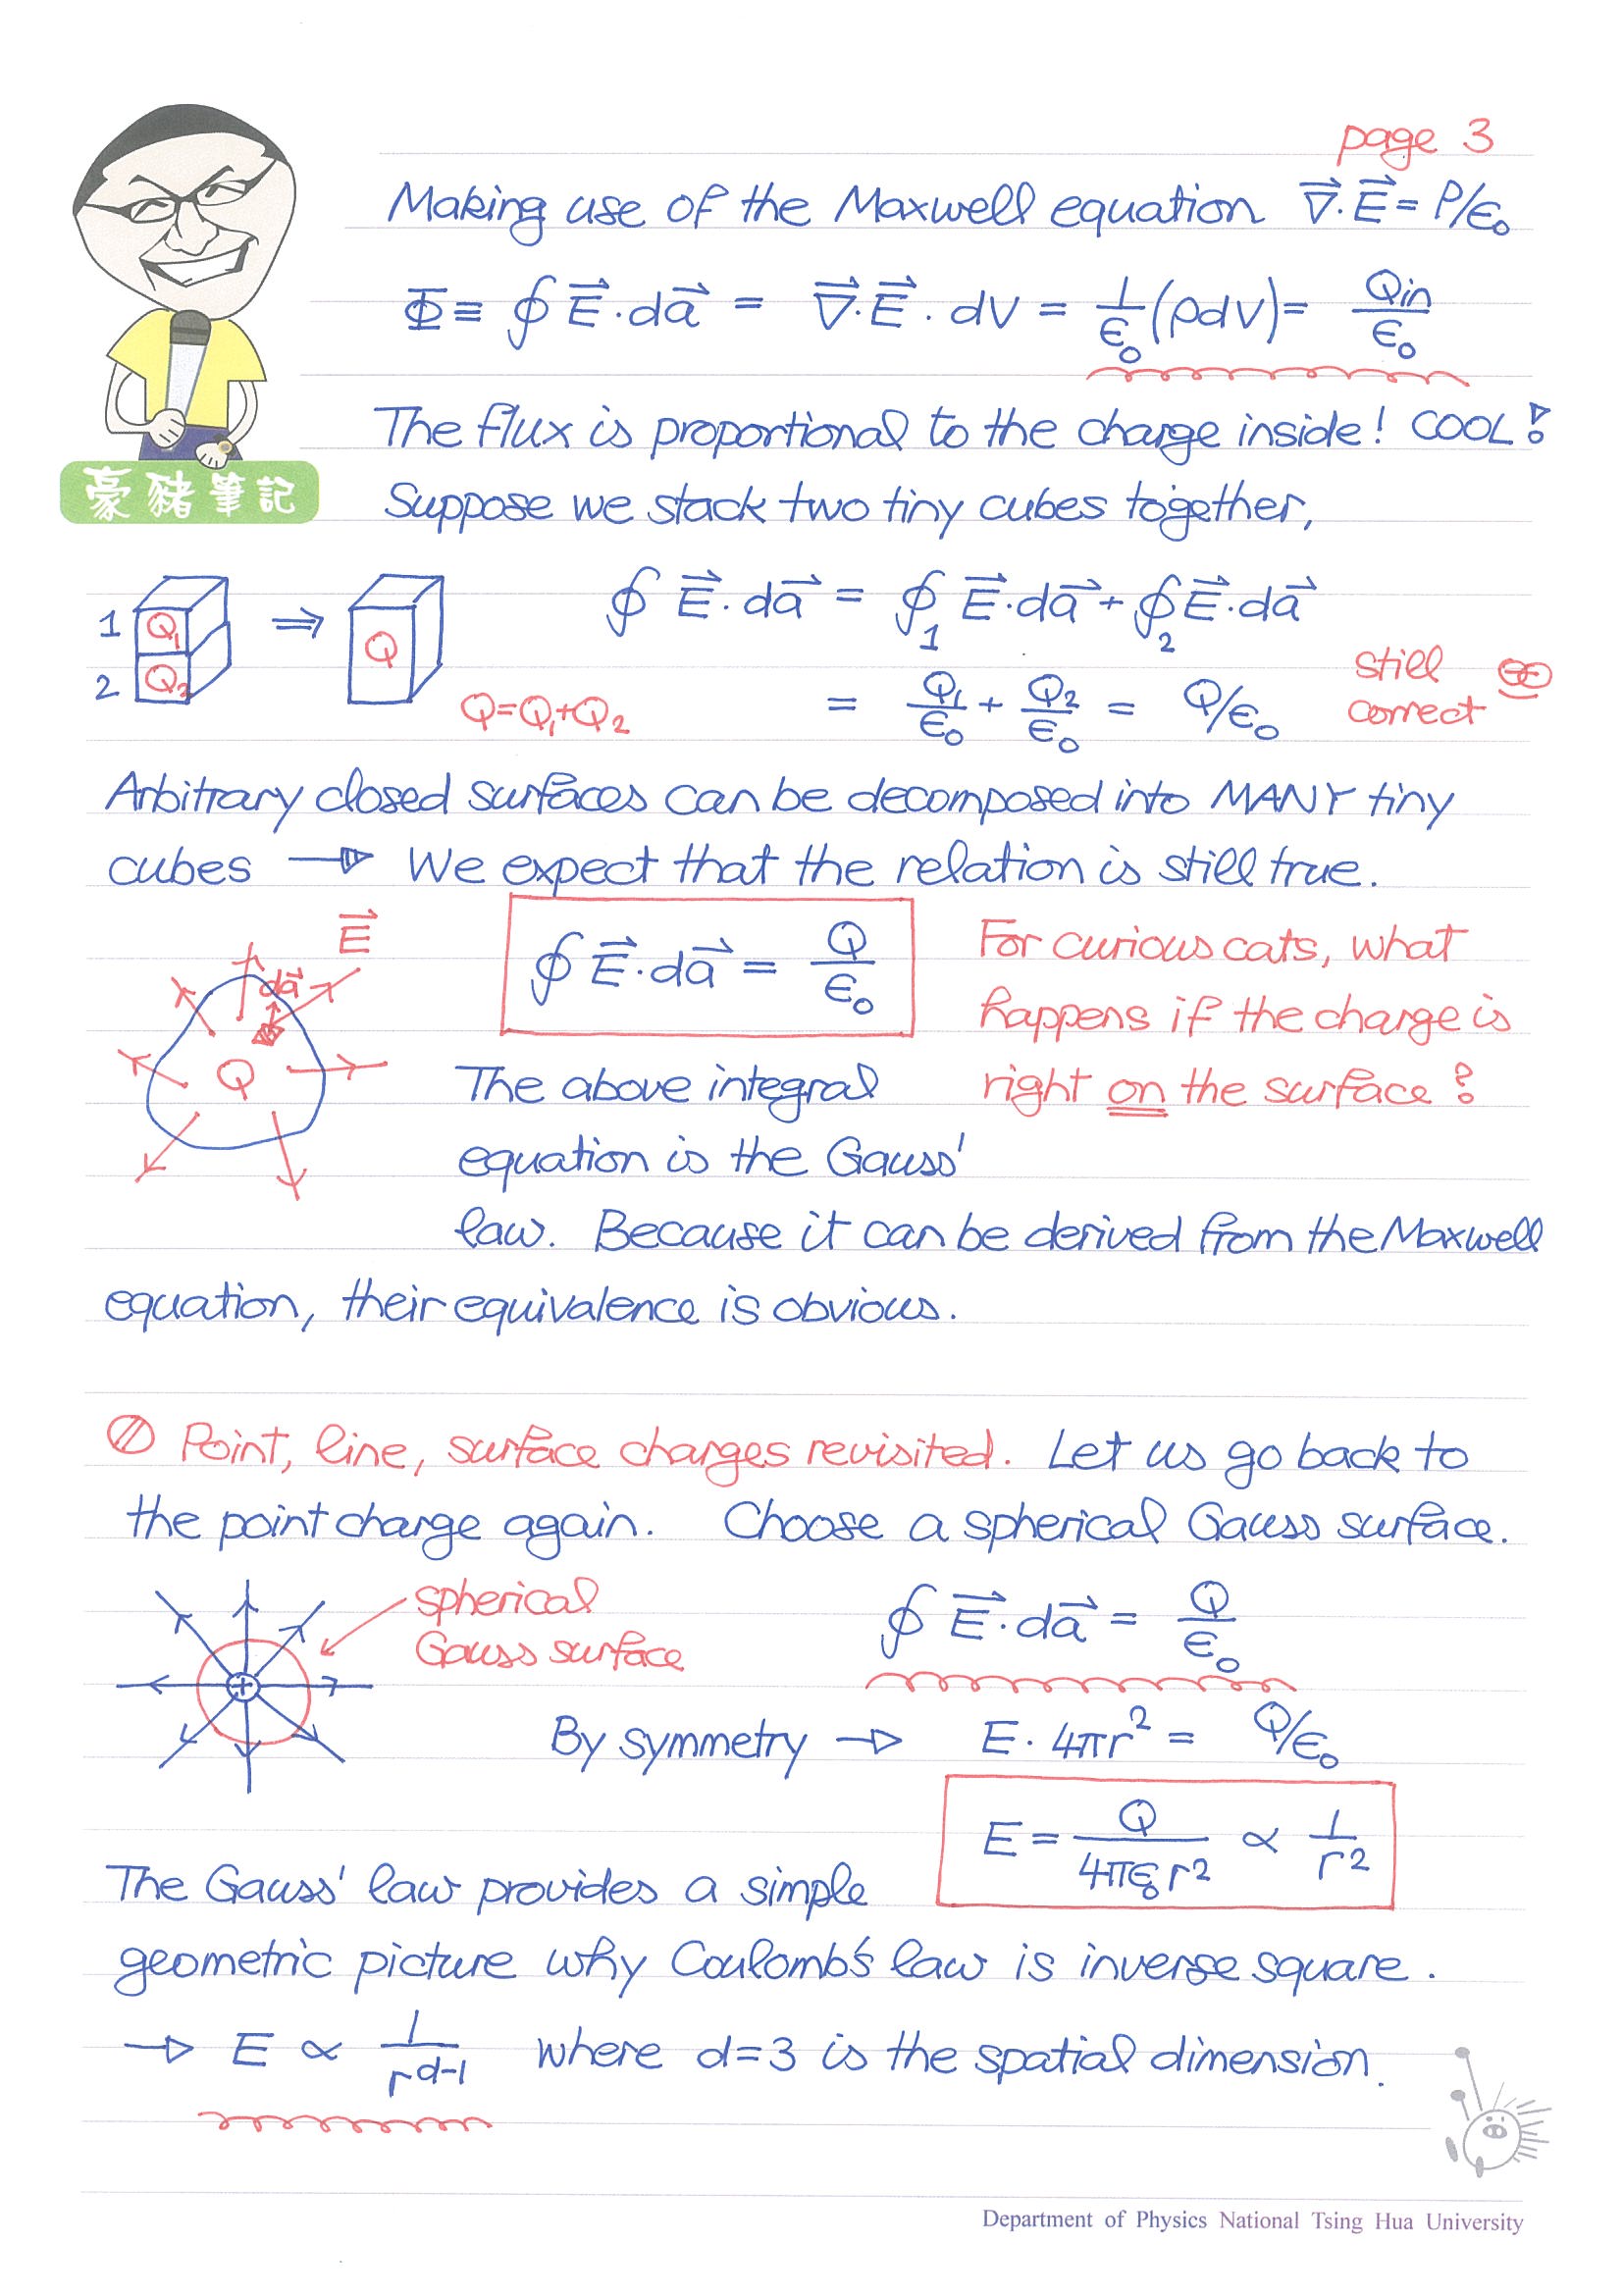 page 3
Making use of the Maxwell equation ∇⃗·E⃗ = ρ/ε₀
Φ ≡ ∮ E⃗·da⃗ = ∇⃗·E⃗ · dV = 1/ε₀ (ρdV) = Qin/ε₀
The flux is proportional to the charge inside! COOL!
豪豬筆記
Suppose we stack two tiny cubes together,
1 Q₁ ⇒ Q
2 Q₂
Q=Q₁+Q₂
∮ E⃗·da⃗ = ∮₁ E⃗·da⃗ + ∮₂ E⃗·da⃗
= Q₁/ε₀ + Q₂/ε₀ = Q/ε₀
still
correct
Arbitrary closed surfaces can be decomposed into MANY tiny
cubes → We expect that the relation is still true.
E⃗
da⃗
Q
∮ E⃗·da⃗ = Q/ε₀
For curious cats, what
happens if the charge is
right on the surface?
The above integral
equation is the Gauss'
law. Because it can be derived from the Maxwell
equation, their equivalence is obvious.
Point, line, surface charges revisited. Let us go back to
the point charge again. Choose a spherical Gauss surface.
+
spherical
Gauss surface
∮ E⃗·da⃗ = Q/ε₀
By symmetry → E · 4πr² = Q/ε₀
E = Q/4πε₀r² ∝ 1/r²
The Gauss' law provides a simple
geometric picture why Coulomb's law is inverse square.
→ E ∝ 1/r^(d-1) where d=3 is the spatial dimension.
Department of Physics National Tsing Hua University